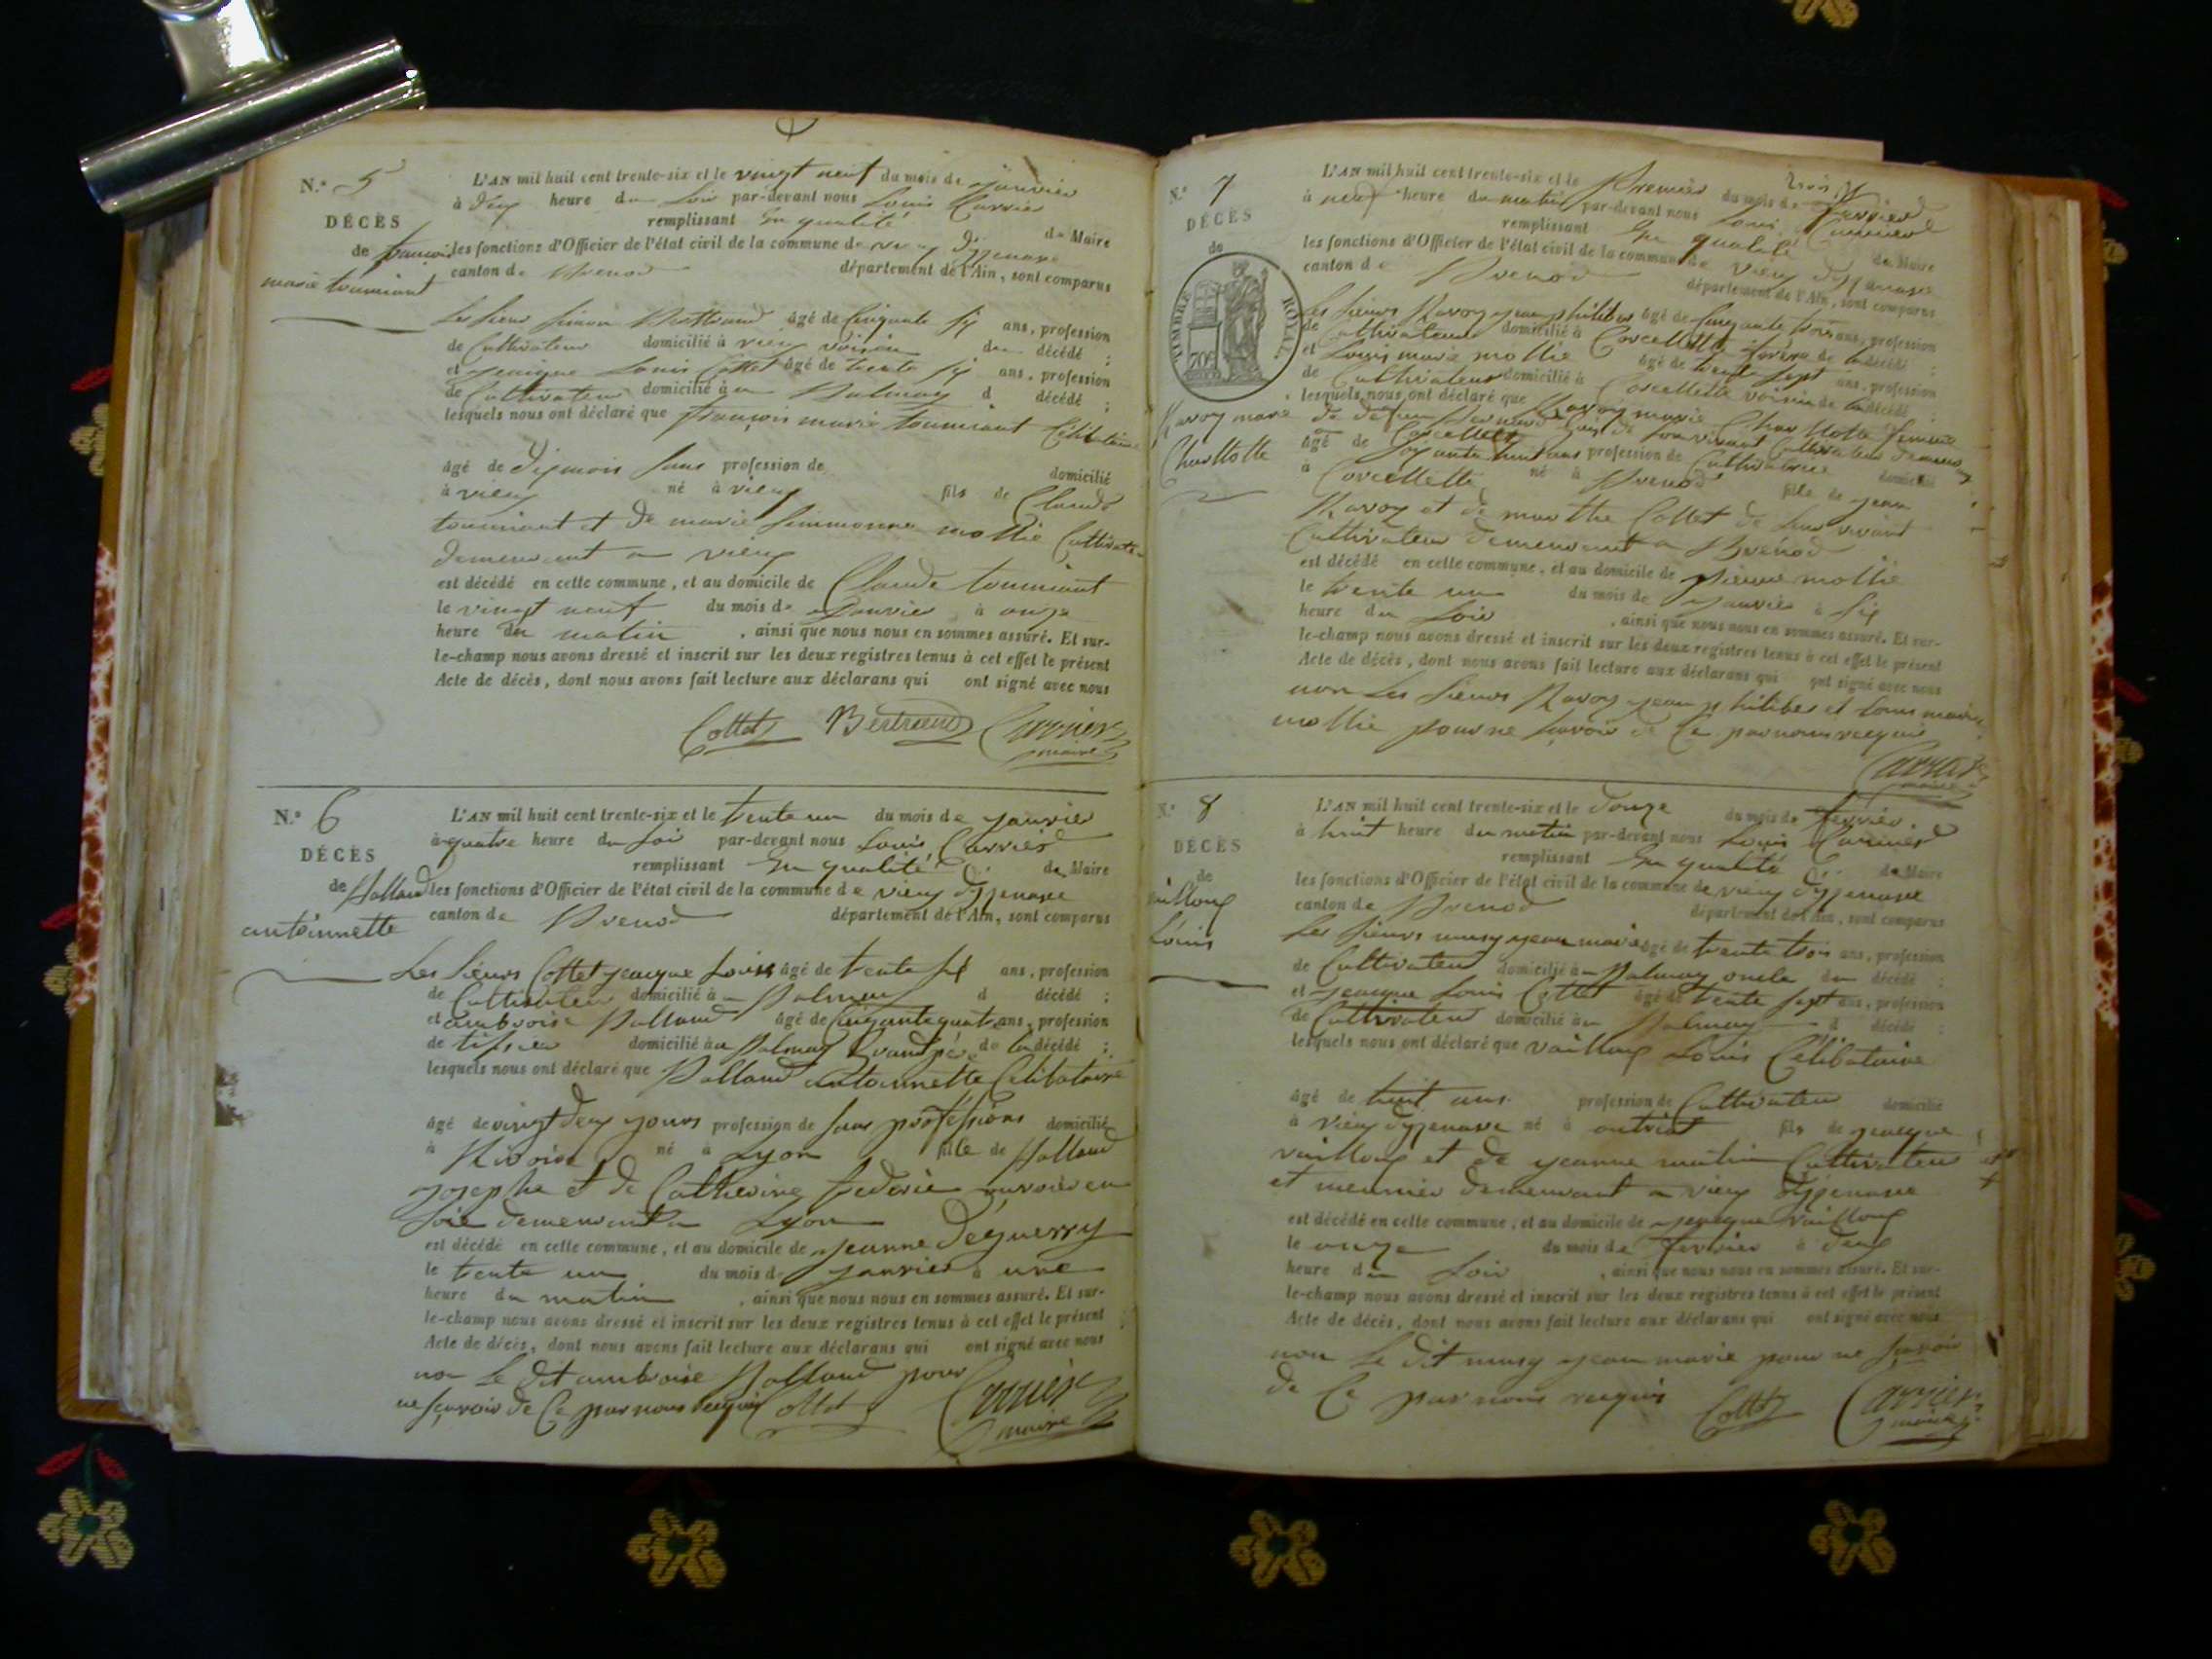 N.° 5
DÉCÈS
de françois
marie tourniant
L'AN mil huit cent trente-six et le vingt neuf du mois de janvier
à deux heure du soir par-devant nous Louis Carrier
remplissant en qualité de Maire
les fonctions d'Officier de l'état civil de la commune de vieux d'yzenave
canton de Brenod département de l'Ain, sont comparus
Les sieurs simon Bertrand âgé de Cinquante six ans, profession
de Cultivateur domicilié à vieux voisin du décédé ;
et jeacque Louis Cottet âgé de trente six ans, profession
de Cultivateur domicilié à au Balmay d décédé ;
lesquels nous ont déclaré que françois marie tourniant Célibataire
âgé de dix mois sans profession de domicilié
à vieux né à vieux fils de Claude
tourniant et de marie simmonne mollie Cultivateur
demeurant a vieux
est décédé en cette commune, et au domicile de Claude tourniant
le vingt neuf du mois de janvier à onze
heure du matin, ainsi que nous nous en sommes assuré. Et sur-
le-champ nous avons dressé et inscrit sur les deux registres tenus à cet effet le présent
Acte de décès, dont nous avons fait lecture aux déclarans qui ont signé avec nous
Cottet Bertrand Carrier
maire
N.° 6
DÉCÈS
de Balland
antoinnette
L'AN mil huit cent trente-six et le trente un du mois de janvier
à quatre heure du soir par-devant nous Louis Carrier
remplissant en qualité de Maire
les fonctions d'Officier de l'état civil de la commune de vieux d'yzenave
canton de Brenod département de l'Ain, sont comparus
Les sieurs Cottet jeacque Louis âgé de trente six ans, profession
de Cultivateur domicilié à au Balmay d décédé ;
et ambroise Balland âgé de Cinquante quatre ans, profession
de tissier domicilié au Balmay Grand père de la décédé ;
lesquels nous ont déclaré que Balland antoinnette Célibataire
âgé de vingt deux jours profession de sans professions domicilié
à Rivoire né à Lyon fille de Balland
josephe et de Catherine federie ouvrier en
soie demeurant a Lyon
est décédé en cette commune, et au domicile de jeanne déguerry
le trente un du mois de janvier à une
heure du matin, ainsi que nous nous en sommes assuré. Et sur-
le-champ nous avons dressé et inscrit sur les deux registres tenus à cet effet le présent
Acte de décès, dont nous avons fait lecture aux déclarans qui ont signé avec nous
non Le dit ambroise Balland pour
ne sçavoir de Ce par nous requis Cottet Carrier
maire
N.° 7
DÉCÈS
de
TIMBRE ROYAL
70c
Ravoy marie
Charllotte
trois
L'AN mil huit cent trente-six et le Premier du mois de fevrier
à neuf heure du matin par-devant nous Louis Carrier
remplissant en qualité de Maire
les fonctions d'Officier de l'état civil de la commune de vieux d'yzenave
canton de Brenod département de l'Ain, sont comparus
Les sieurs Ravoy jean philiber âgé de Cinquante trois ans, profession
de Cultivateur domicilié à Corcellette frère de la décédé ;
et Louis marie mollie âgé de trente sept ans, profession
de Cultivateur domicilié à Corcellette voisin de la décédé ;
lesquels nous ont déclaré que Ravoy marie Charllotte femme
de défeu de son vivant Cultivateur demeurant
âgé de soixante huit ans profession de Cultivatrice domicilié
à Corcellette né à Brenod fille de jean
Ravoy et de marthe Collet de leur vivant
Cultivateur demeurant a Brenod
est décédé en cette commune, et au domicile de pierre mollie
le trente un du mois de janvier à six
heure du soir, ainsi que nous nous en sommes assuré. Et sur-
le-champ nous avons dressé et inscrit sur les deux registres tenus à cet effet le présent
Acte de décès, dont nous avons fait lecture aux déclarans qui ont signé avec nous
non Les sieurs Ravoy jean philiber et Louis marie
mollie pour ne savoir de Ce par nous requis
Carrier
maire
N.° 8
DÉCÈS
de
vailloux
Louis
L'AN mil huit cent trente-six et le douze du mois de fevrier
à huit heure du matin par-devant nous Louis Carrier
remplissant en qualité de Maire
les fonctions d'Officier de l'état civil de la commune de vieux d'yzenave
canton de Brenod département de l'Ain, sont comparus
Les sieurs musy jean marie âgé de trente trois ans, profession
de Cultivateur domicilié à au Balmay oncle du décédé ;
et jeacque Louis Cottet âgé de trente sept ans, profession
de Cultivateur domicilié à au Balmay d décédé ;
lesquels nous ont déclaré que vailloux Louis Célibataire
âgé de huit ans profession de Cultivateur domicilié
à vieux d'yzenave né à outriat fils de jeacque
vailloux et de jeanne mathieu Cultivateur
et meunier demeurant a vieux d'yzenave
est décédé en cette commune, et au domicile de jeacque vailloux
le onze du mois de fevrier à deux
heure du soir, ainsi que nous nous en sommes assuré. Et sur-
le-champ nous avons dressé et inscrit sur les deux registres tenus à cet effet le présent
Acte de décès, dont nous avons fait lecture aux déclarans qui ont signé avec nous
non Le dit musy jean marie pour ne sçavoir
de Ce par nous requis Cottet Carrier
maire